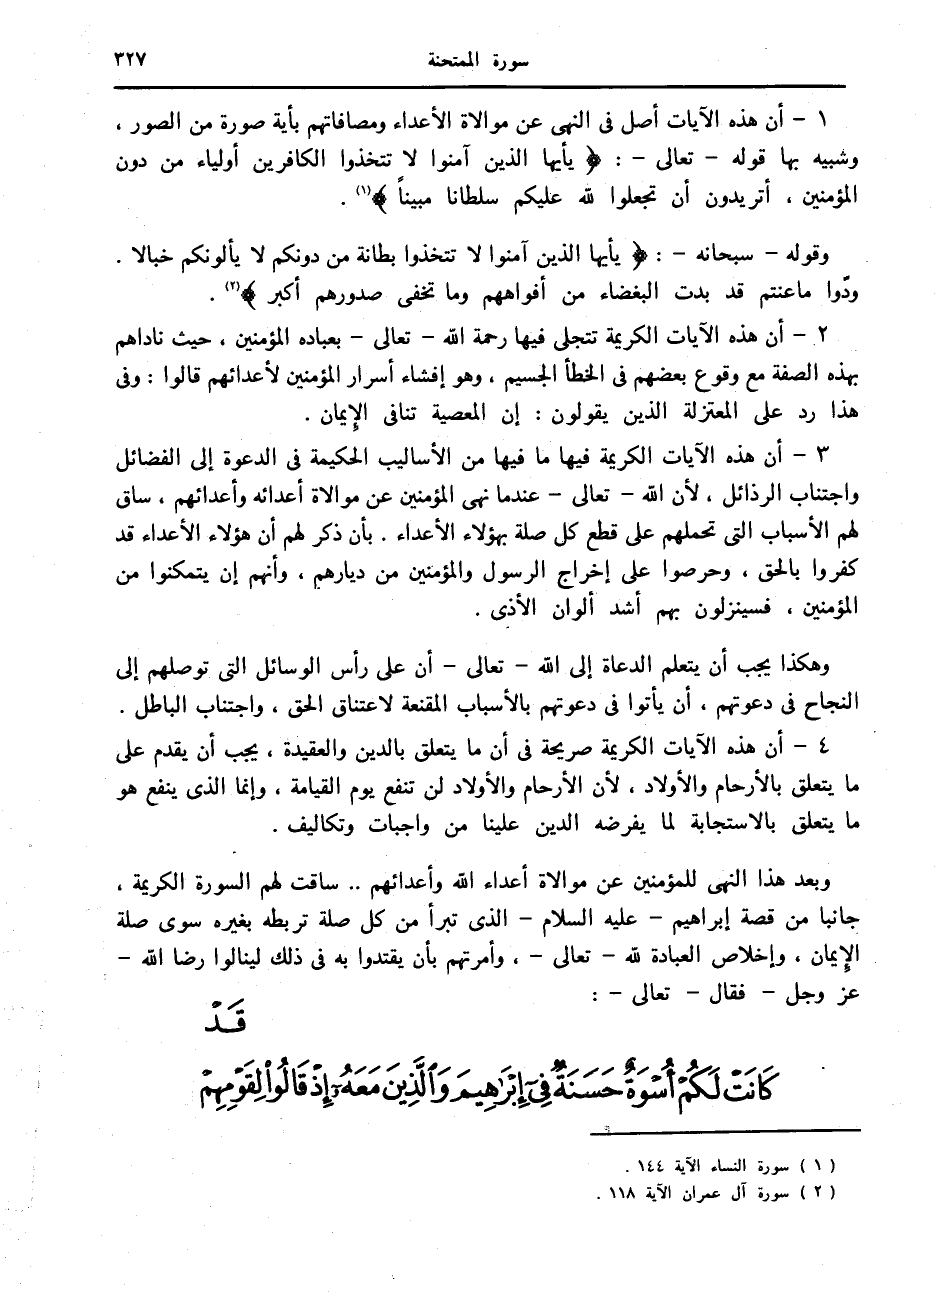 سورة الممتحنة ٣٢٧
١ – أن هذه الآيات أصل فى النهى عن موالاة الأعداء ومصافاتهم بأية صورة من الصور ،
وشبيه بها قوله – تعالى – : ﴿ يأيها الذين آمنوا لا تتخذوا الكافرين أولياء من دون
المؤمنين ، أتريدون أن تجعلوا لله عليكم سلطانا مبيناً ﴾(١) .
وقوله – سبحانه – : ﴿ يأيها الذين آمنوا لا تتخذوا بطانة من دونكم لا يألونكم خبالا .
ودّوا ماعنتم قد بدت البغضاء من أفواههم وما تخفى صدورهم أكبر ﴾(٢) .
٢ – أن هذه الآيات الكريمة تتجلى فيها رحمة الله – تعالى – بعباده المؤمنين ، حيث ناداهم
بهذه الصفة مع وقوع بعضهم فى الخطأ الجسيم ، وهو إفشاء أسرار المؤمنين لأعدائهم قالوا : وفى
هذا رد على المعتزلة الذين يقولون : إن المعصية تنافى الإيمان .
٣ – أن هذه الآيات الكريمة فيها ما فيها من الأساليب الحكيمة فى الدعوة إلى الفضائل
واجتناب الرذائل ، لأن الله – تعالى – عندما نهى المؤمنين عن موالاة أعدائه وأعدائهم ، ساق
لهم الأسباب التى تحملهم على قطع كل صلة بهؤلاء الأعداء . بأن ذكر لهم أن هؤلاء الأعداء قد
كفروا بالحق ، وحرصوا على إخراج الرسول والمؤمنين من ديارهم ، وأنهم إن يتمكنوا من
المؤمنين ، فسينزلون بهم أشد ألوان الأذى .
وهكذا يجب أن يتعلم الدعاة إلى الله – تعالى – أن على رأس الوسائل التى توصلهم إلى
النجاح فى دعوتهم ، أن يأتوا فى دعوتهم بالأسباب المقنعة لاعتناق الحق ، واجتناب الباطل .
٤ – أن هذه الآيات الكريمة صريحة فى أن ما يتعلق بالدين والعقيدة ، يجب أن يقدم على
ما يتعلق بالأرحام والأولاد ، لأن الأرحام والأولاد لن تنفع يوم القيامة ، وإنما الذى ينفع هو
ما يتعلق بالاستجابة لما يفرضه الدين علينا من واجبات وتكاليف .
وبعد هذا النهى للمؤمنين عن موالاة أعداء الله وأعدائهم .. ساقت لهم السورة الكريمة ،
جانبا من قصة إبراهيم – عليه السلام – الذى تبرأ من كل صلة تربطه بغيره سوى صلة
الإيمان ، وإخلاص العبادة لله – تعالى – ، وأمرتهم بأن يقتدوا به فى ذلك لينالوا رضا الله –
عز وجل – فقال – تعالى – :
قَدْ
كَانَتْ لَكُمْ أُسْوَةٌ حَسَنَةٌ فِىٓ إِبْرَٰهِيمَ وَٱلَّذِينَ مَعَهُۥٓ إِذْ قَالُوا۟ لِقَوْمِهِمْ
( ١ ) سورة النساء الآية ١٤٤ .
( ٢ ) سورة آل عمران الآية ١١٨ .